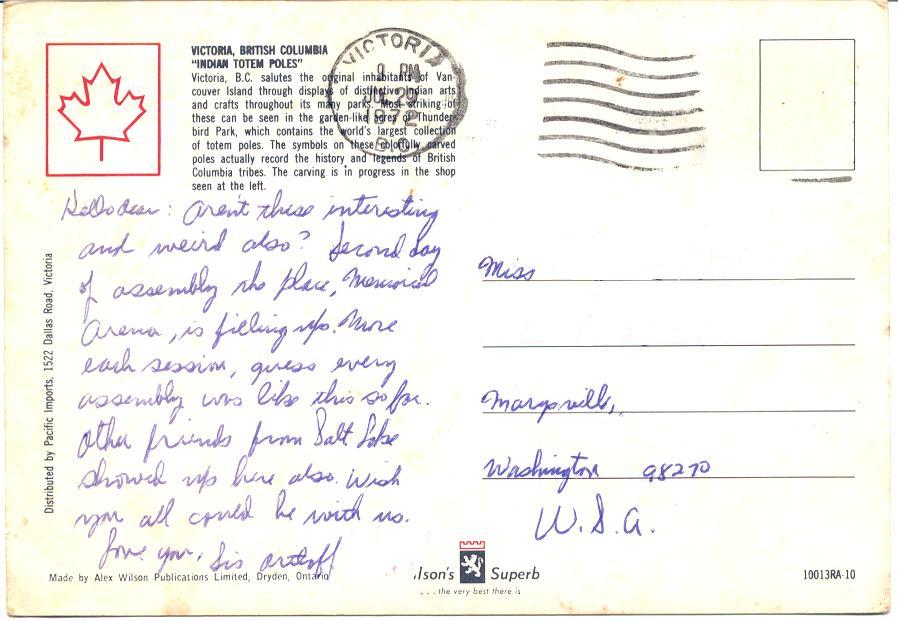 VICTORIA, BRITISH COLUMBIA
"INDIAN TOTEM POLES"
Victoria, B.C. salutes the original inhabitants of Van-
couver Island through displays of distinctive Indian arts
and crafts throughout its many parks. Most striking of
these can be seen in the garden-like acres of Thunder-
bird Park, which contains the world's largest collection
of totem poles. The symbols on these colorfully carved
poles actually record the history and legends of British
Columbia tribes. The carving is in progress in the shop
seen at the left.
VICTORIA
PM
29
1972
Hello dear: Aren't these interesting
and weird also? Second day
of assembly the place, Memorial
Arena, is filling up. More
each session, guess every
assembly was like this so far.
Other friends from Salt Lake
showed up here also. Wish
you all could be with us.
Love you, Sis
Miss
Marysville,
Washington 98270
U.S.A.
Distributed by Pacific Imports, 1522 Dallas Road, Victoria
Made by Alex Wilson Publications Limited, Dryden, Ontario
lson's Superb
... the very best there is
10013RA-10